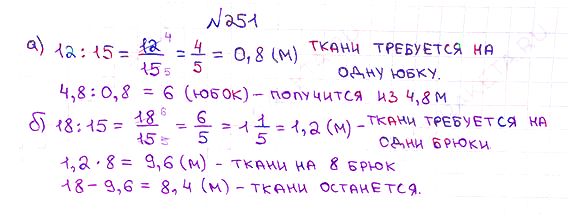 №251
а) 12 : 15 = 12/15 = 4/5 = 0,8 (м) ткани требуется на
одну юбку.
4,8 : 0,8 = 6 (юбок) – получится из 4,8 м
б) 18 : 15 = 18/15 = 6/5 = 1 1/5 = 1,2 (м) - ткани требуется на
одни брюки
1,2 · 8 = 9,6 (м) - ткани на 8 брюк
18 – 9,6 = 8,4 (м) - ткани останется.